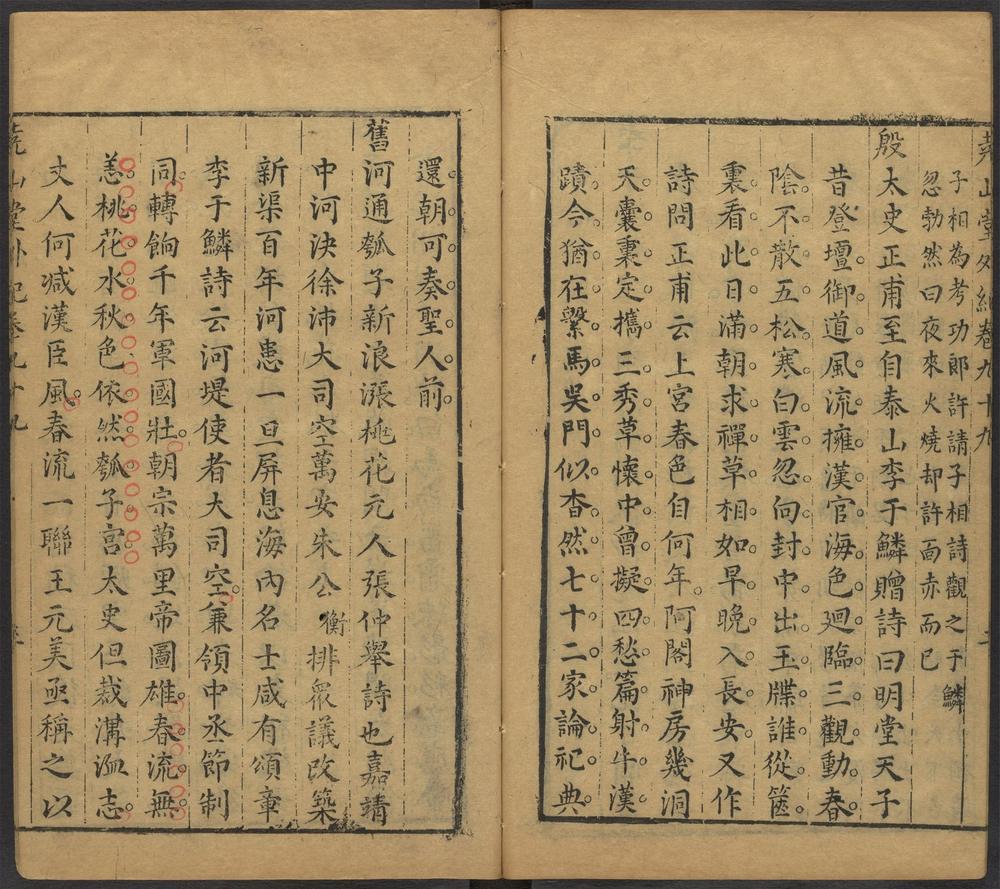 堯山堂外紀卷九十九 二
子相為考功郎許請子相詩觀之于鱗
忽勃然曰夜來火燒却許面赤而已
殷太史正甫至自泰山李于鱗贈詩曰明堂天子
昔登壇御道風流擁漢官海色廻臨三觀動春
陰不散五松寒白雲忽向封中出玉牒誰從篋
裏看此日滿朝求禪草相如早晚入長安又作
詩問正甫云上宮春色自何年阿閣神房幾洞
天囊裏定攜三秀草懷中曾擬四愁篇射牛漢
蹟今猶在繫馬吳門似杳然七十二家論祀典
還朝可奏聖人前
舊河通瓠子新浪漲桃花元人張仲舉詩也嘉靖
中河決徐沛大司空萬安朱公衡排眾議改築
新渠百年河患一旦屏息海內名士咸有頌章
李于鱗詩云河堤使者大司空兼領中丞節制
同轉餉千年軍國壯朝宗萬里帝圖雄春流無
恙桃花水秋色依然瓠子宮太史但裁溝洫志
丈人何減漢臣風春流一聯王元美亟稱之以
堯山堂外紀卷九十九